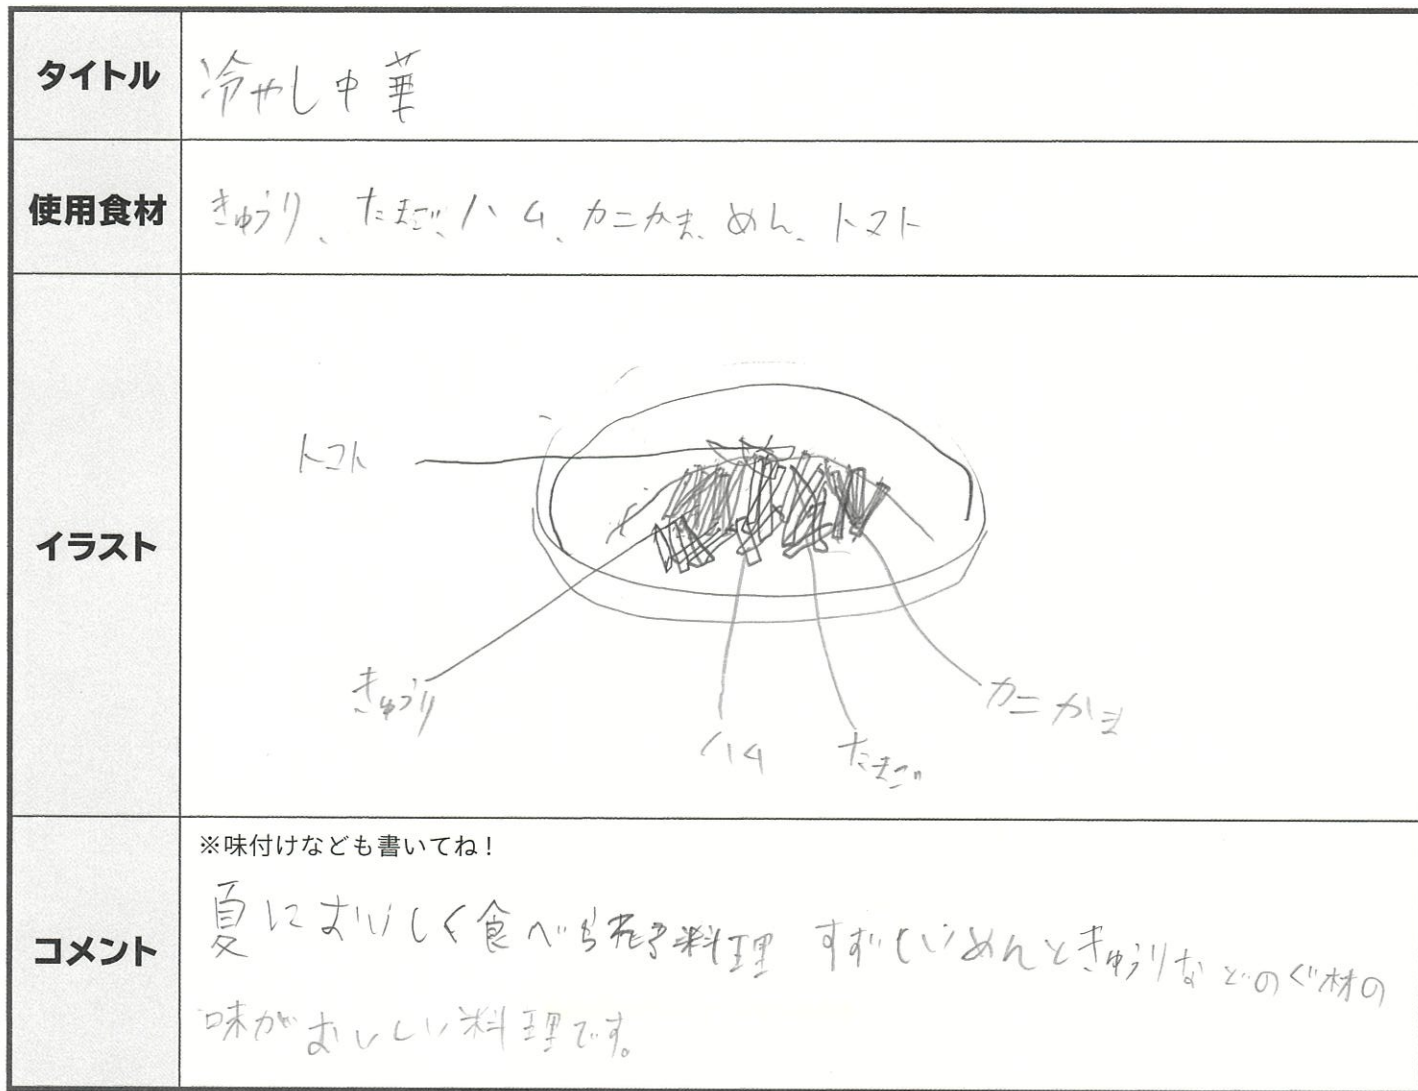 タイトル
冷やし中華
使用食材
きゅうり、たまご、ハム、カニかま、めん、トマト
イラスト
トマト
きゅうり
ハム
たまご
カニかま
コメント
※味付けなども書いてね!
夏においしく食べられる料理 すずしいめんときゅうりなどのぐ材の
味がおいしい料理です。